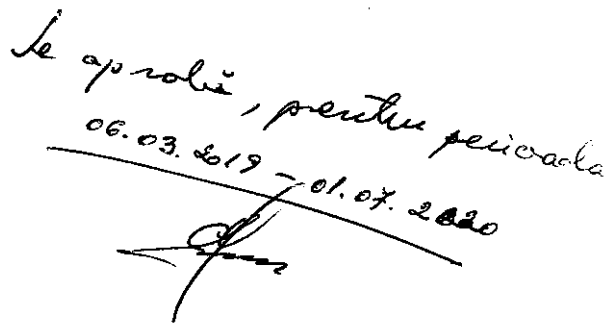 Se aprobă, pentru perioada
06.03.2019 - 01.07.2020